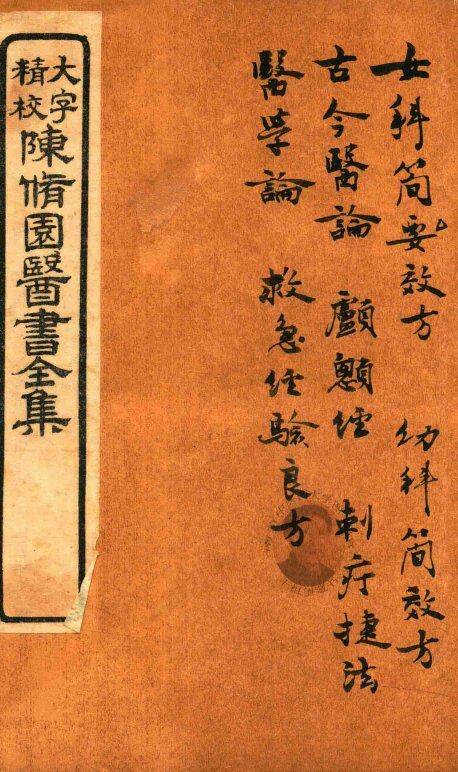 女科简要效方 幼科简效方
古今醫論 顱顖經 刺疔捷法
醫学論 救急经驗良方
大字
精校
陳脩園醫書全集